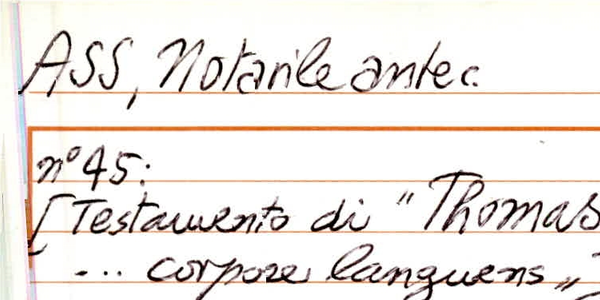 ASS, Notarile antec.
n° 45:
[Testamento di "Thomas
... corpore languens„]